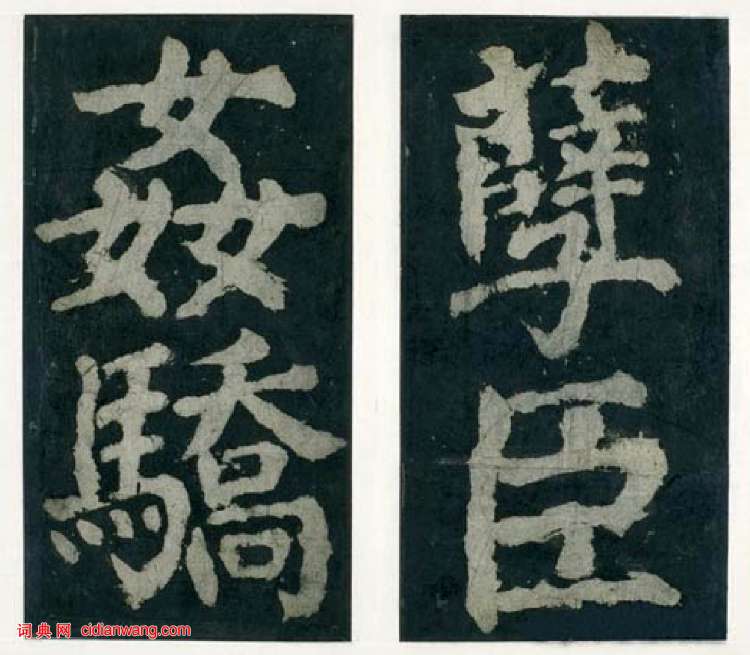 孽臣
姦驕
词典网 cidianwang.com